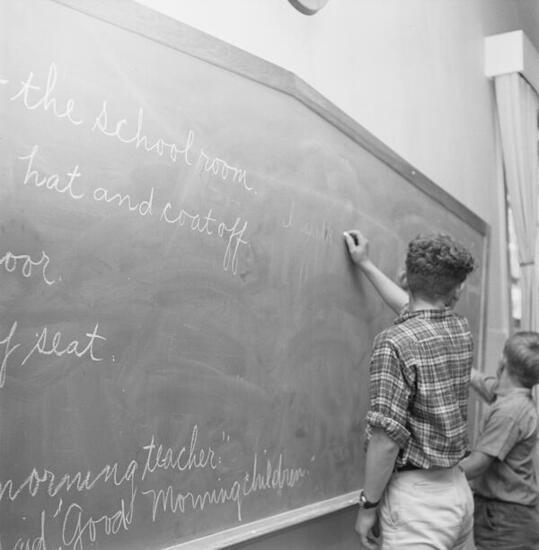 the schoolroom.
hat and coat off
oor.
f seat.
morning teacher."
aid "Good Morning children."